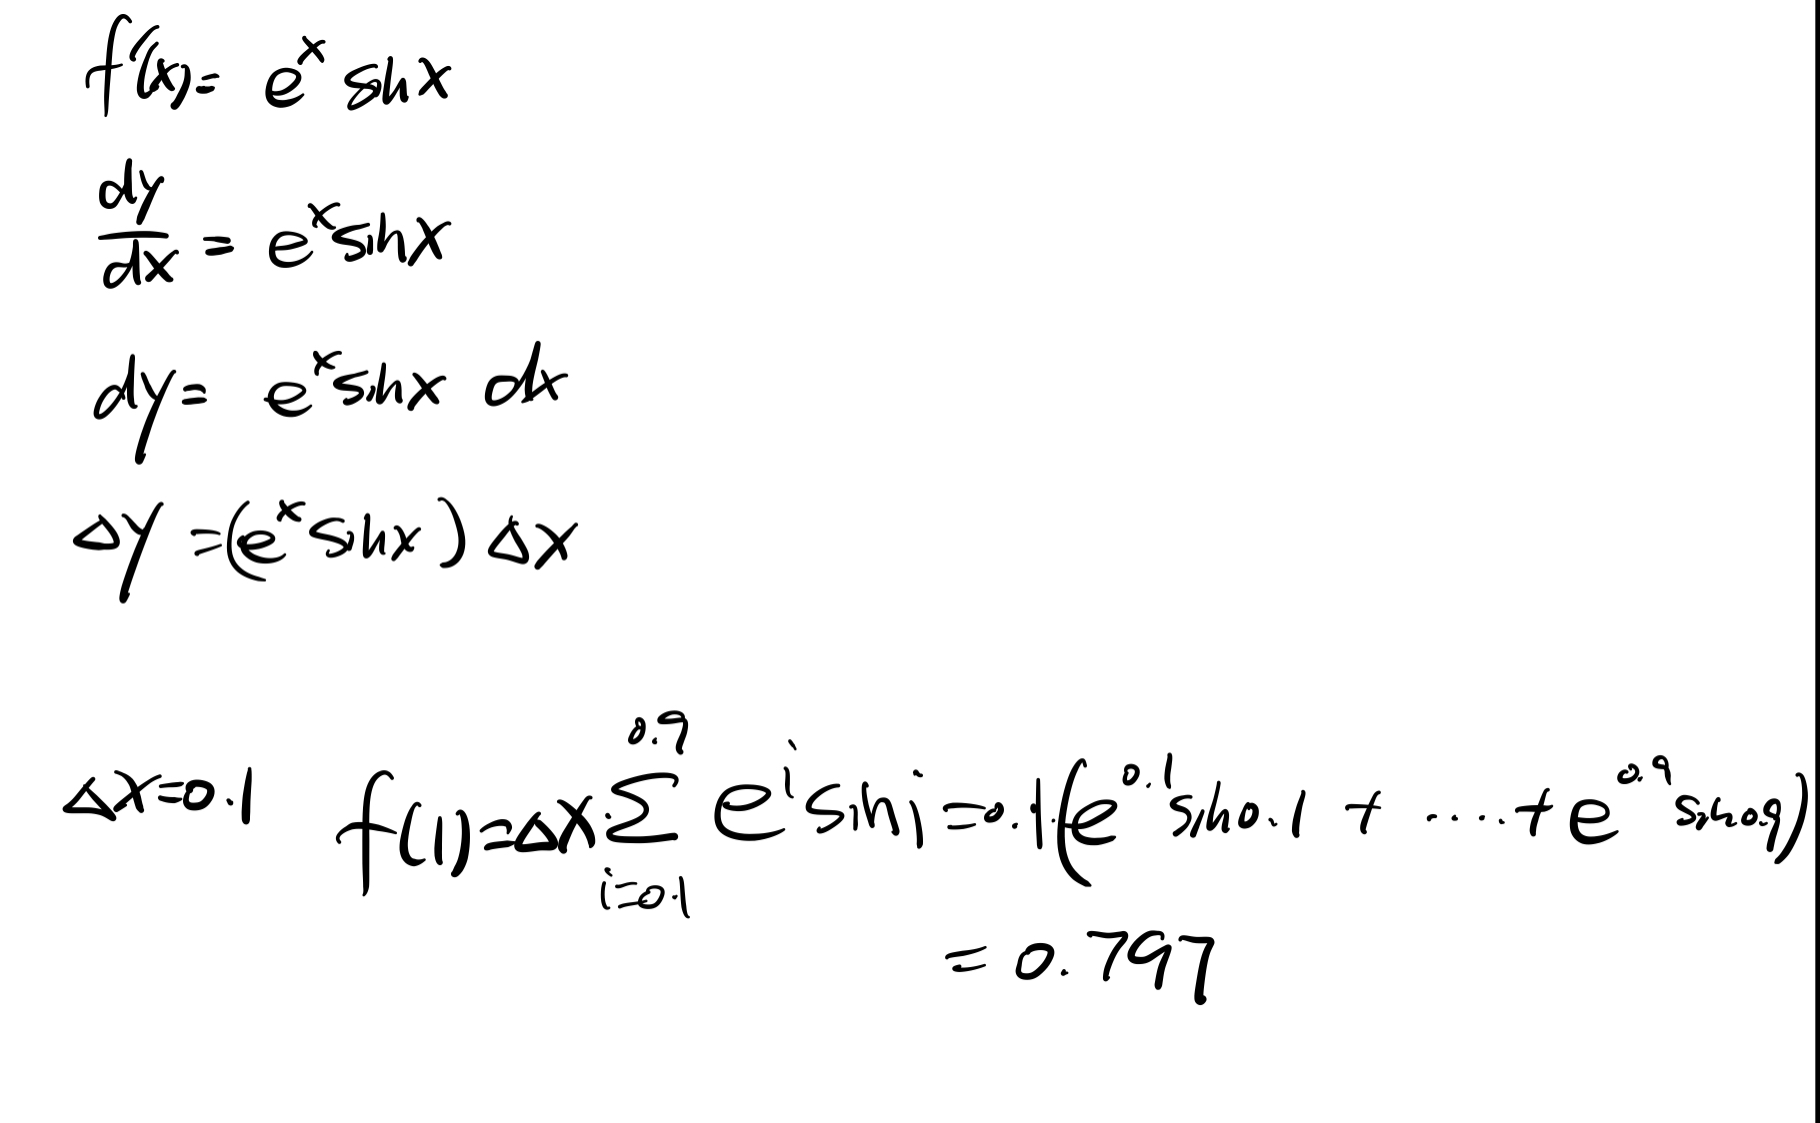 f'(x) = e^x sin x
dy/dx = e^x sin x
dy = e^x sin x dx
Δy = (e^x sin x) Δx
Δx=0.1 f(1) = Δx · Σ_{i=0.1}^{0.9} e^i sin i = 0.1 · (e^{0.1} sin 0.1 + ..... + e^{0.9} sin 0.9)
= 0.797